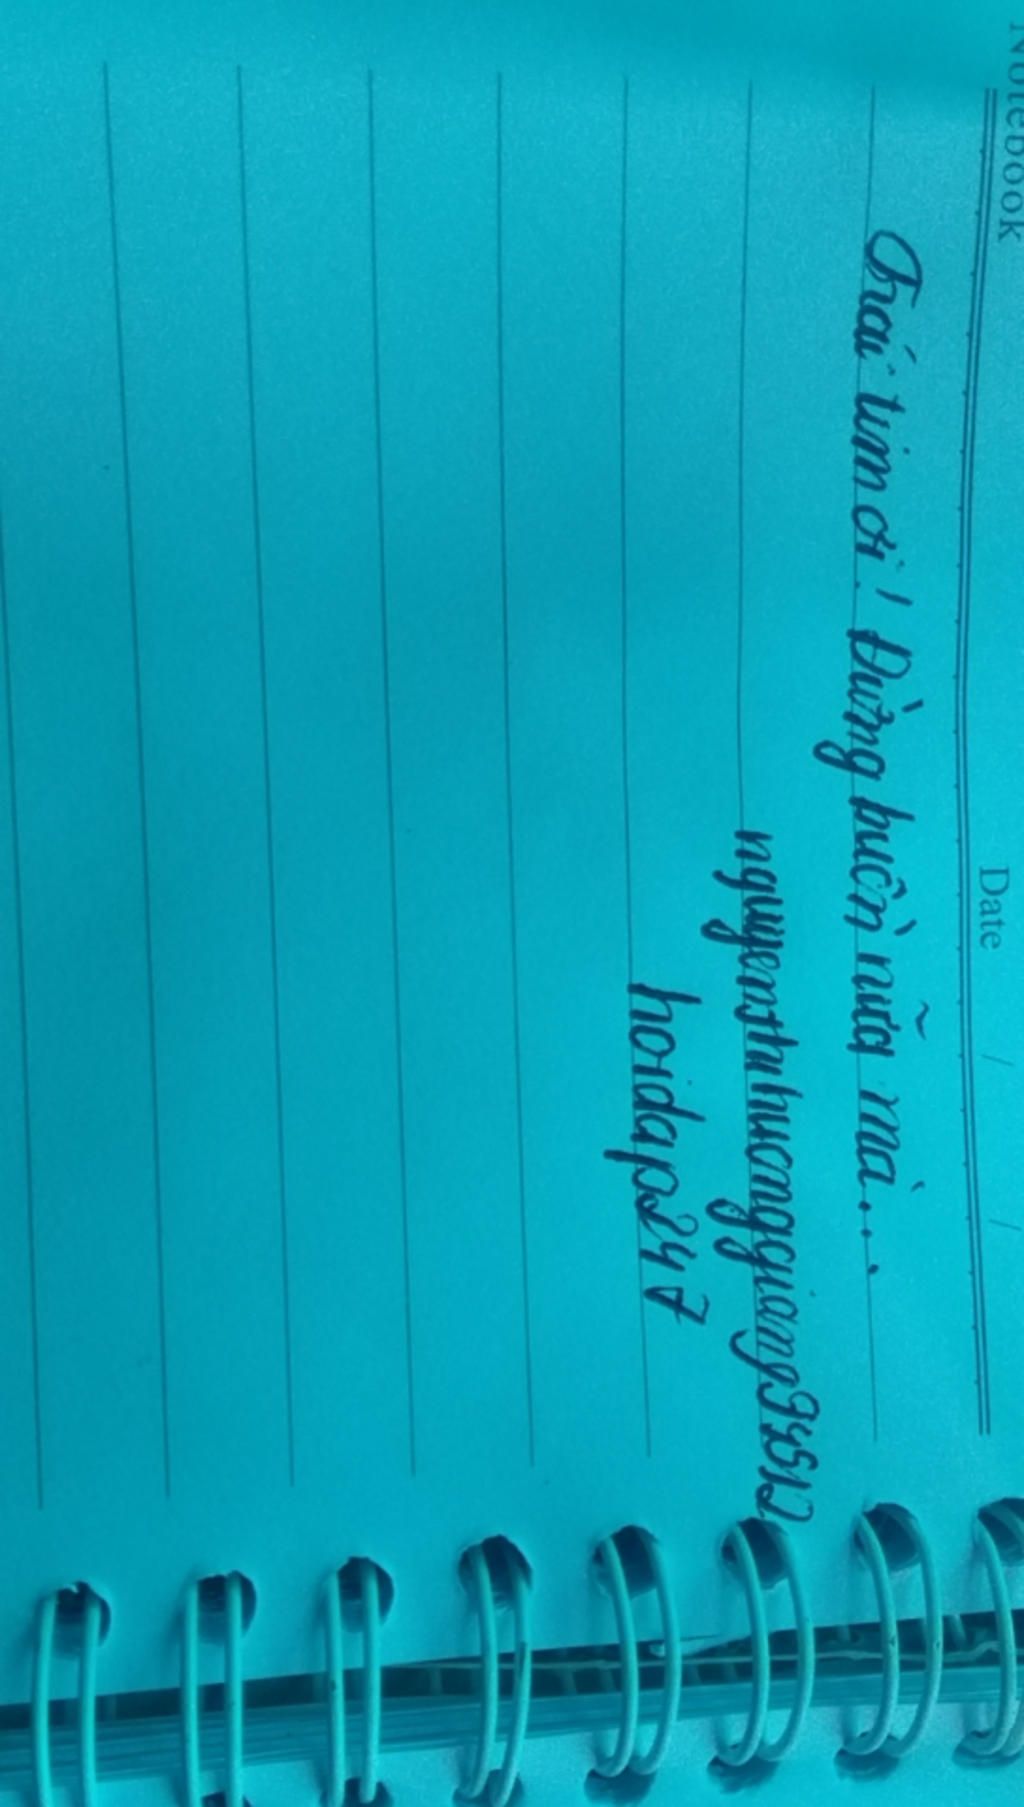 Notebook
Date / /
Trái tim ơi! Đừng buồn nữa mà...
hoidap247